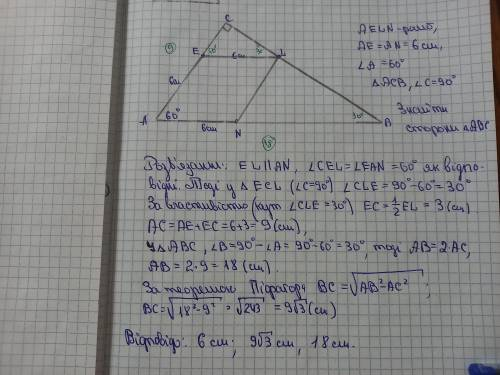 C
AELN-ромб,
AE=AN=6см,
∠A=60°
△ACB, ∠C=90°
Знайти
сторони △ABC
9
E
60°
6см
L
6см
A
60°
6см
N
30°
B
18
Розв'язання: EL||AN, ∠CEL=∠EAN=60° як відпо-
відні. Тоді у △ECL (∠C=90°) ∠CLE=90°-60°=30°
За властивістю (кут ∠CLE=30°) EC=1/2EL=3(см)
AC=AE+EC=6+3=9(см),
У △ABC, ∠B=90°-∠A=90°-60°=30°, тоді AB=2·AC,
AB=2·9=18(см).
За теоремою Піфагора BC=√(AB²-AC²);
BC=√(18²-9²)=√243=9√3(см)
Відповідь: 6см; 9√3см, 18см.